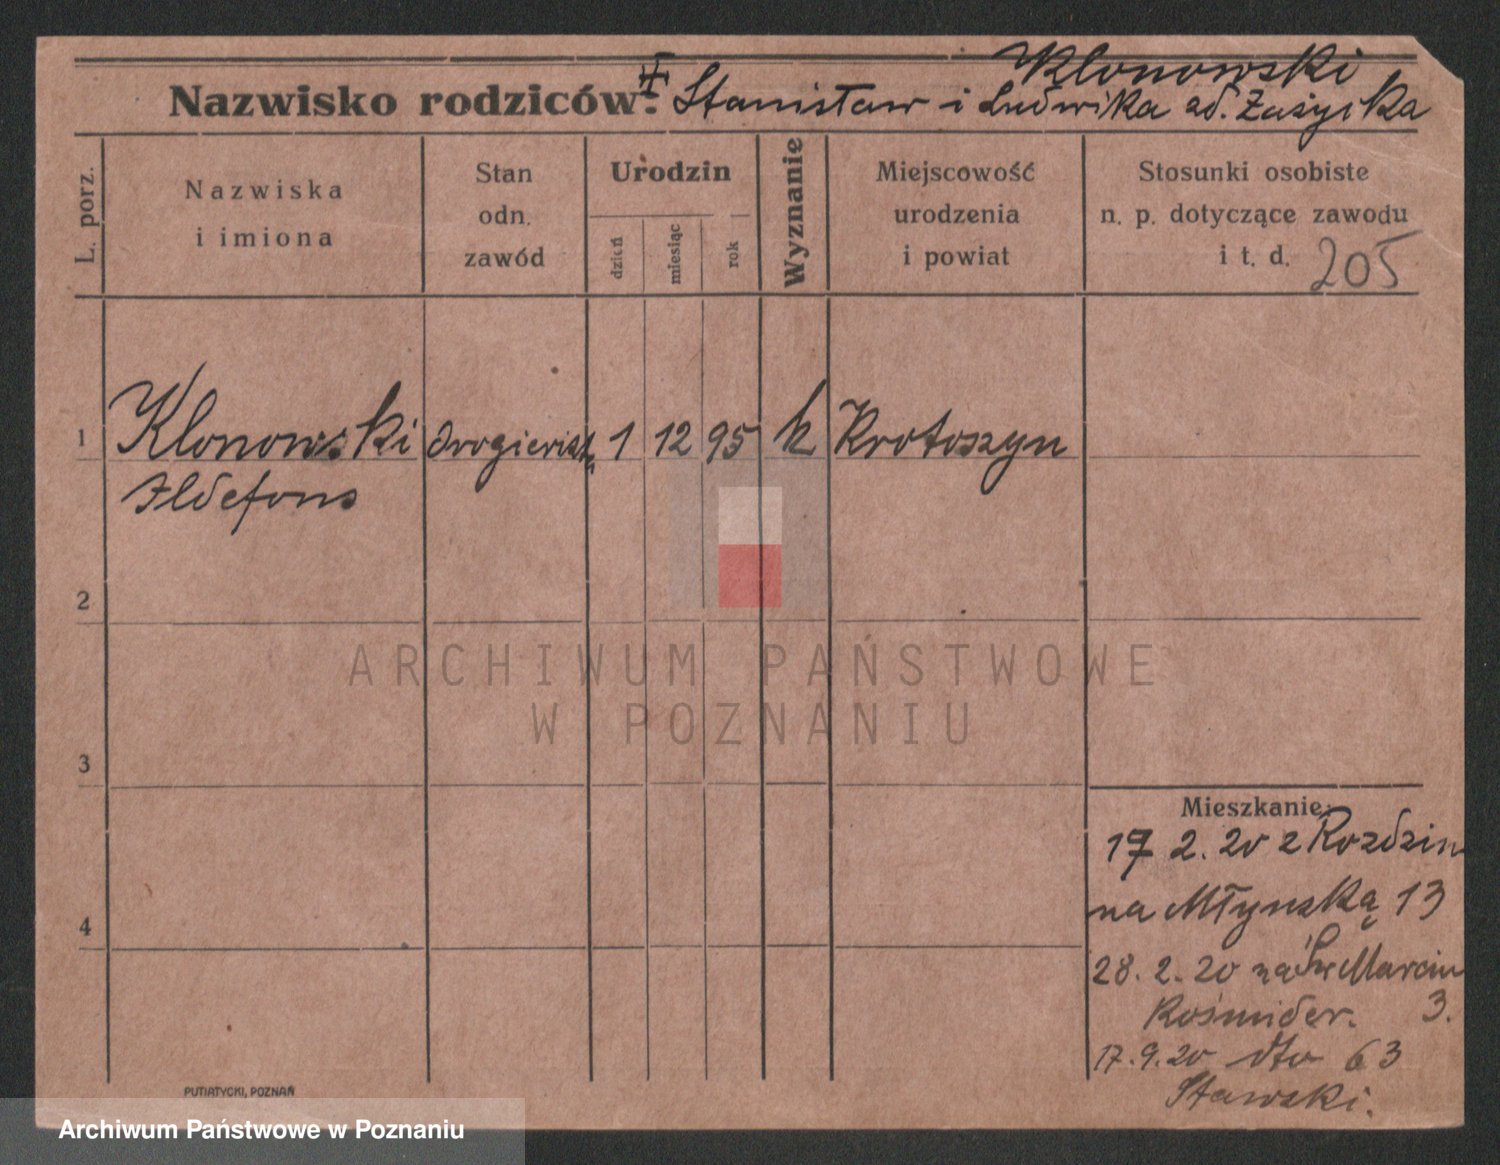 Klonowski
Nazwisko rodziców: Stanisław i Ludwika zd. Zużycka
L. porz.
Nazwiska
i imiona
Stan
odn.
zawód
Urodzin
dzień
miesiąc
rok
Wyznanie
Miejscowość
urodzenia
i powiat
Stosunki osobiste
n. p. dotyczące zawodu
i t. d.
205
1 Klonowski drogierist 1 12 95 k Krotoszyn
Ildefons
2
3
4
ARCHIWUM PAŃSTWOWE
W POZNANIU
Mieszkanie:
17 2. 20 z Rozdzin
na Młynską 13
28. 2. 20 na Św Marcin
3.
17. 9. 20 dto 63
Stawski.
PUTIATYCKI, POZNAŃ
Archiwum Państwowe w Poznaniu